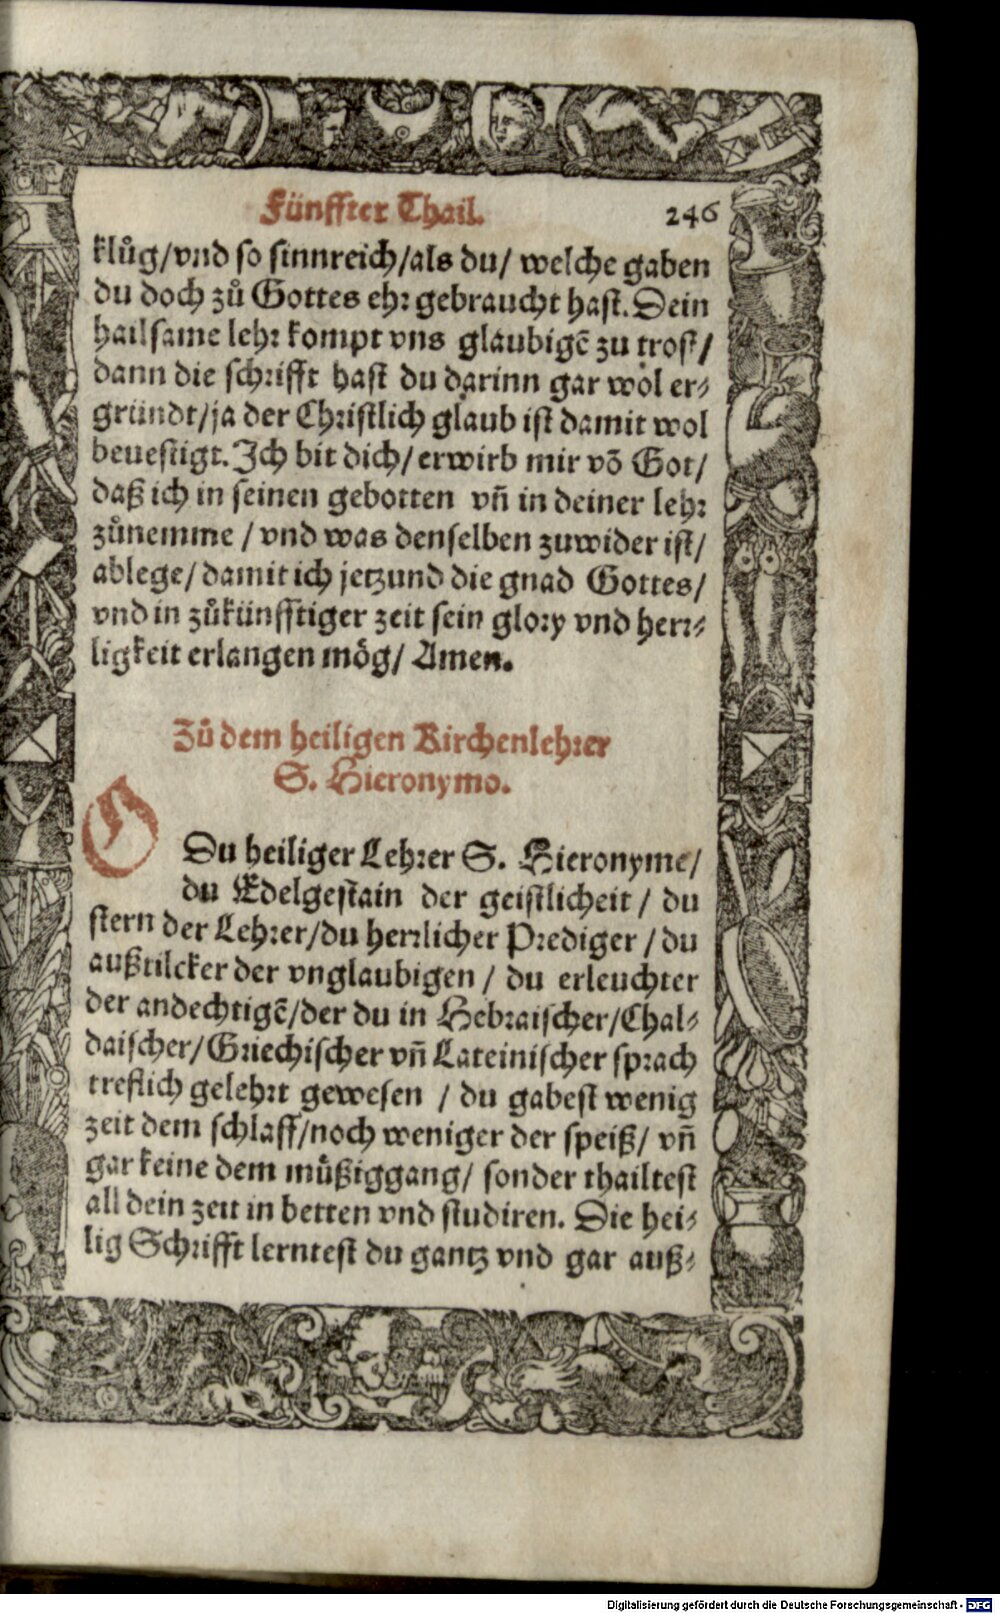 Fünffter Thail. 246
klůg/vnd so sinnreich/als du/ welche gaben
du doch zů Gottes ehr gebraucht hast. Dein
hailsame lehr kompt vns glaubigẽ zu trost/
dann die schrifft hast du darinn gar wol er-
gründt/ja der Christlich glaub ist damit wol
beuestigt. Ich bit dich/ erwirb mir võ Got/
daß ich in seinen gebotten vñ in deiner lehr
zůnemme / vnd was denselben zuwider ist/
ablege/ damit ich jetzund die gnad Gottes/
vnd in zůkünfftiger zeit sein glory vnd herr-
ligkeit erlangen mög/ Amen.
Zů dem heiligen Kirchenlehrer
S. Hieronymo.
O Du heiliger Lehrer S. Hieronyme/
du Edelgestain der geistlicheit / du
stern der Lehrer/du herrlicher Prediger / du
außtilcker der vnglaubigen / du erleuchter
der andechtigẽ/der du in Hebraischer/Chal-
daischer/Griechischer vñ Lateinischer sprach
treflich gelehrt gewesen / du gabest wenig
zeit dem schlaff/noch weniger der speiß/ vñ
gar keine dem můßiggang/ sonder thailtest
all dein zeit in betten vnd studiren. Die hei-
lig Schrifft lerntest du gantz vnd gar auß-
Digitalisierung gefördert durch die Deutsche Forschungsgemeinschaft - DFG